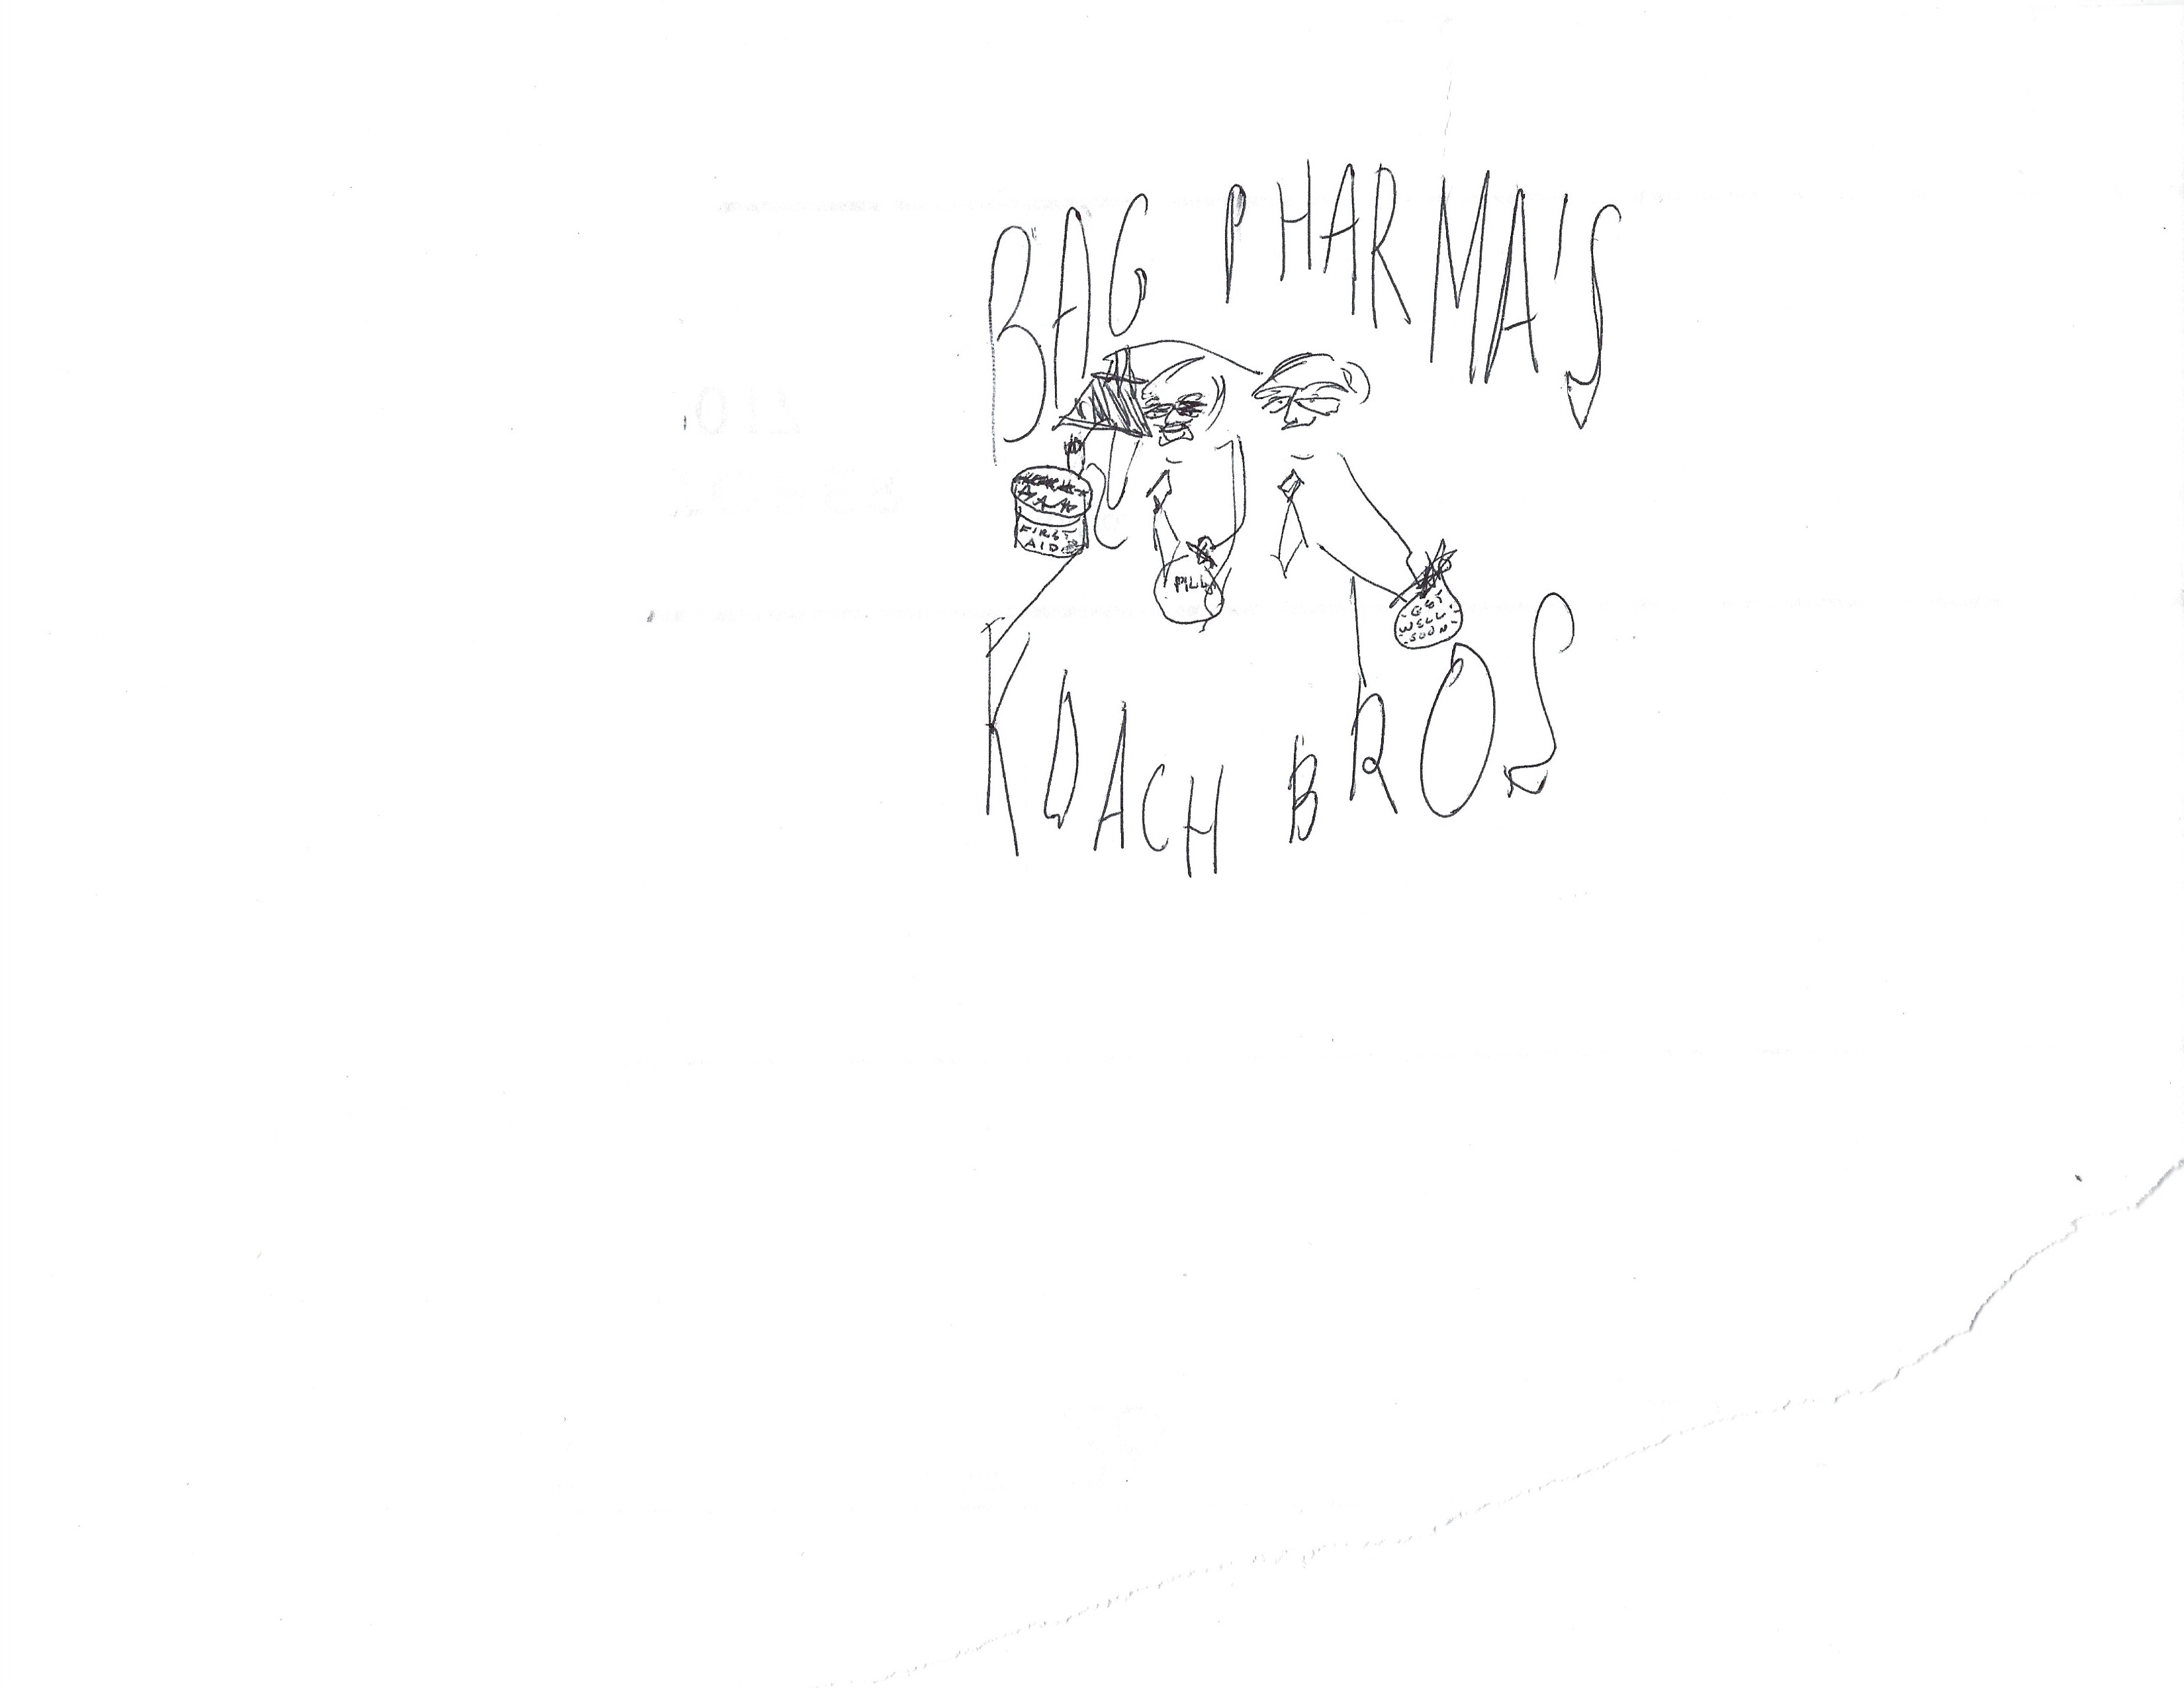 BAG PHARMA'S
FIRST
AID
PILLS
GET
WELL
SOON
KOACH BROS